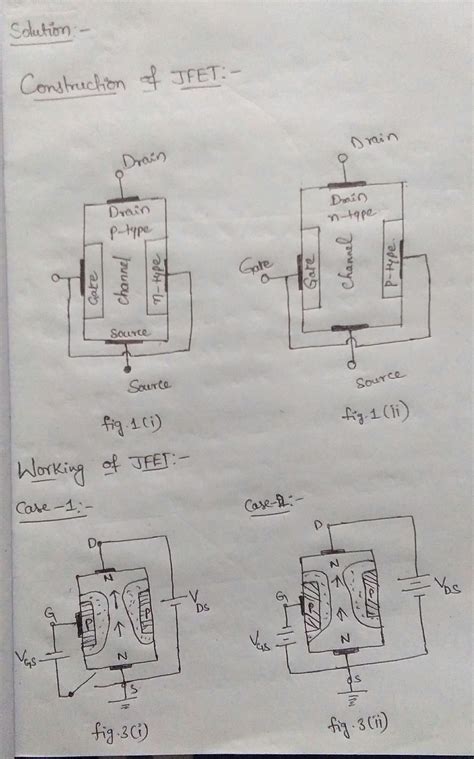 Solution:-
Construction of JFET:-
Drain
Drain
P-type
Gate
channel
n-type
Source
Source
fig.1(i)
Drain
Drain
n-type
Gate
Gate
channel
P-type
Source
fig.1(ii)
Working of JFET:-
Case-1:-
D
N
G
P
P
VDS
VGS
N
S
fig.3(i)
D
N
G
P
P
VDS
VGS
N
S
fig.3(ii)